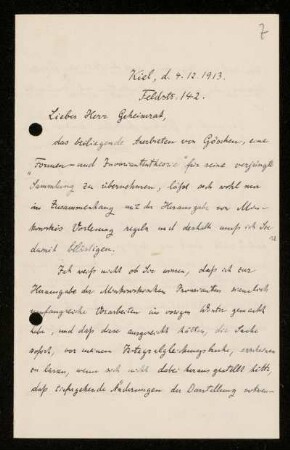 7
Kiel, d. 4.12.1913.
Feldstr. 142.
Lieber Herr Geheimrat,
das beiliegende Anerbieten von Göschen, eine
"Formen- und Invariantentheorie" für seine
Sammlung zu übernehmen, läßt sich wohl nur
im Zusammenhang mit der Herausgabe von Min-
kowskis Vorlesung regeln und deshalb muß ich Sie
damit belästigen.
Ich weiß nicht ob Sie wissen, daß ich zur
Herausgabe der Minkowskischen Invarianten ziemlich
umfangreiche Vorarbeiten im vorigen Winter gemacht
habe, und daß diese ausgereicht hätten, die Sache
sofort, vor meinem Integralgleichungsbuche, erscheinen
zu lassen, wenn sich nicht dabei herausgestellt hätte,
daß tiefgehende Änderungen der Darstellung